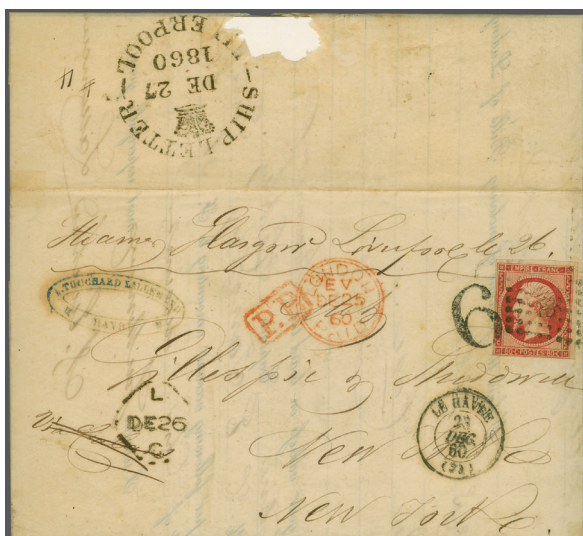 SHIP-LETTER
LIVERPOOL
DE 27
1860
Steamer Glasgow Liverpool le 26.
HAVRE
P.D.
LONDON
EV
DE 25
60
PAID
6
EMPIRE FRANC
80C POSTES 80C
Gillespie &
L
DE26
C
LE HAVRE
23
DEC.
60
(74)
New York
New York